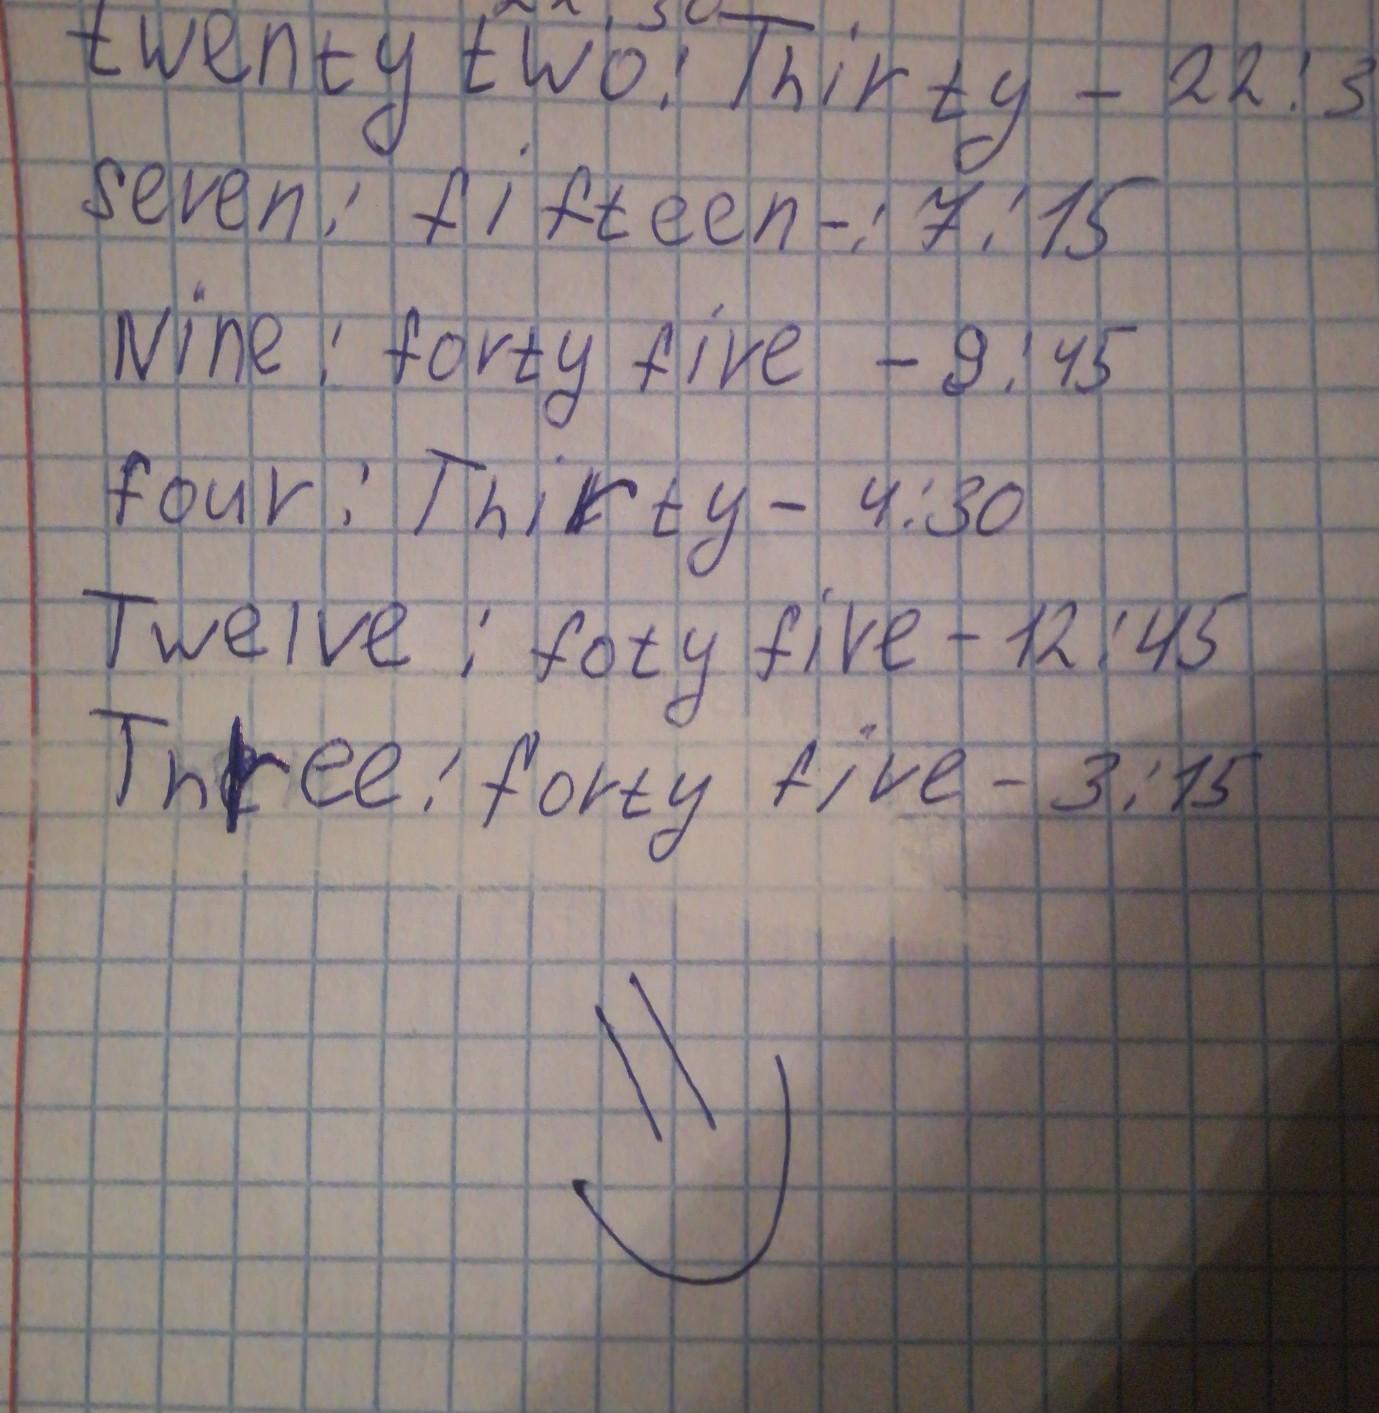 22:30
twenty two: Thirty - 22:3
seven: fifteen -: 7:15
Nine: forty five - 9:45
four: Thirty - 4:30
Twelve: foty five - 12:45
Three: forty five - 3:15